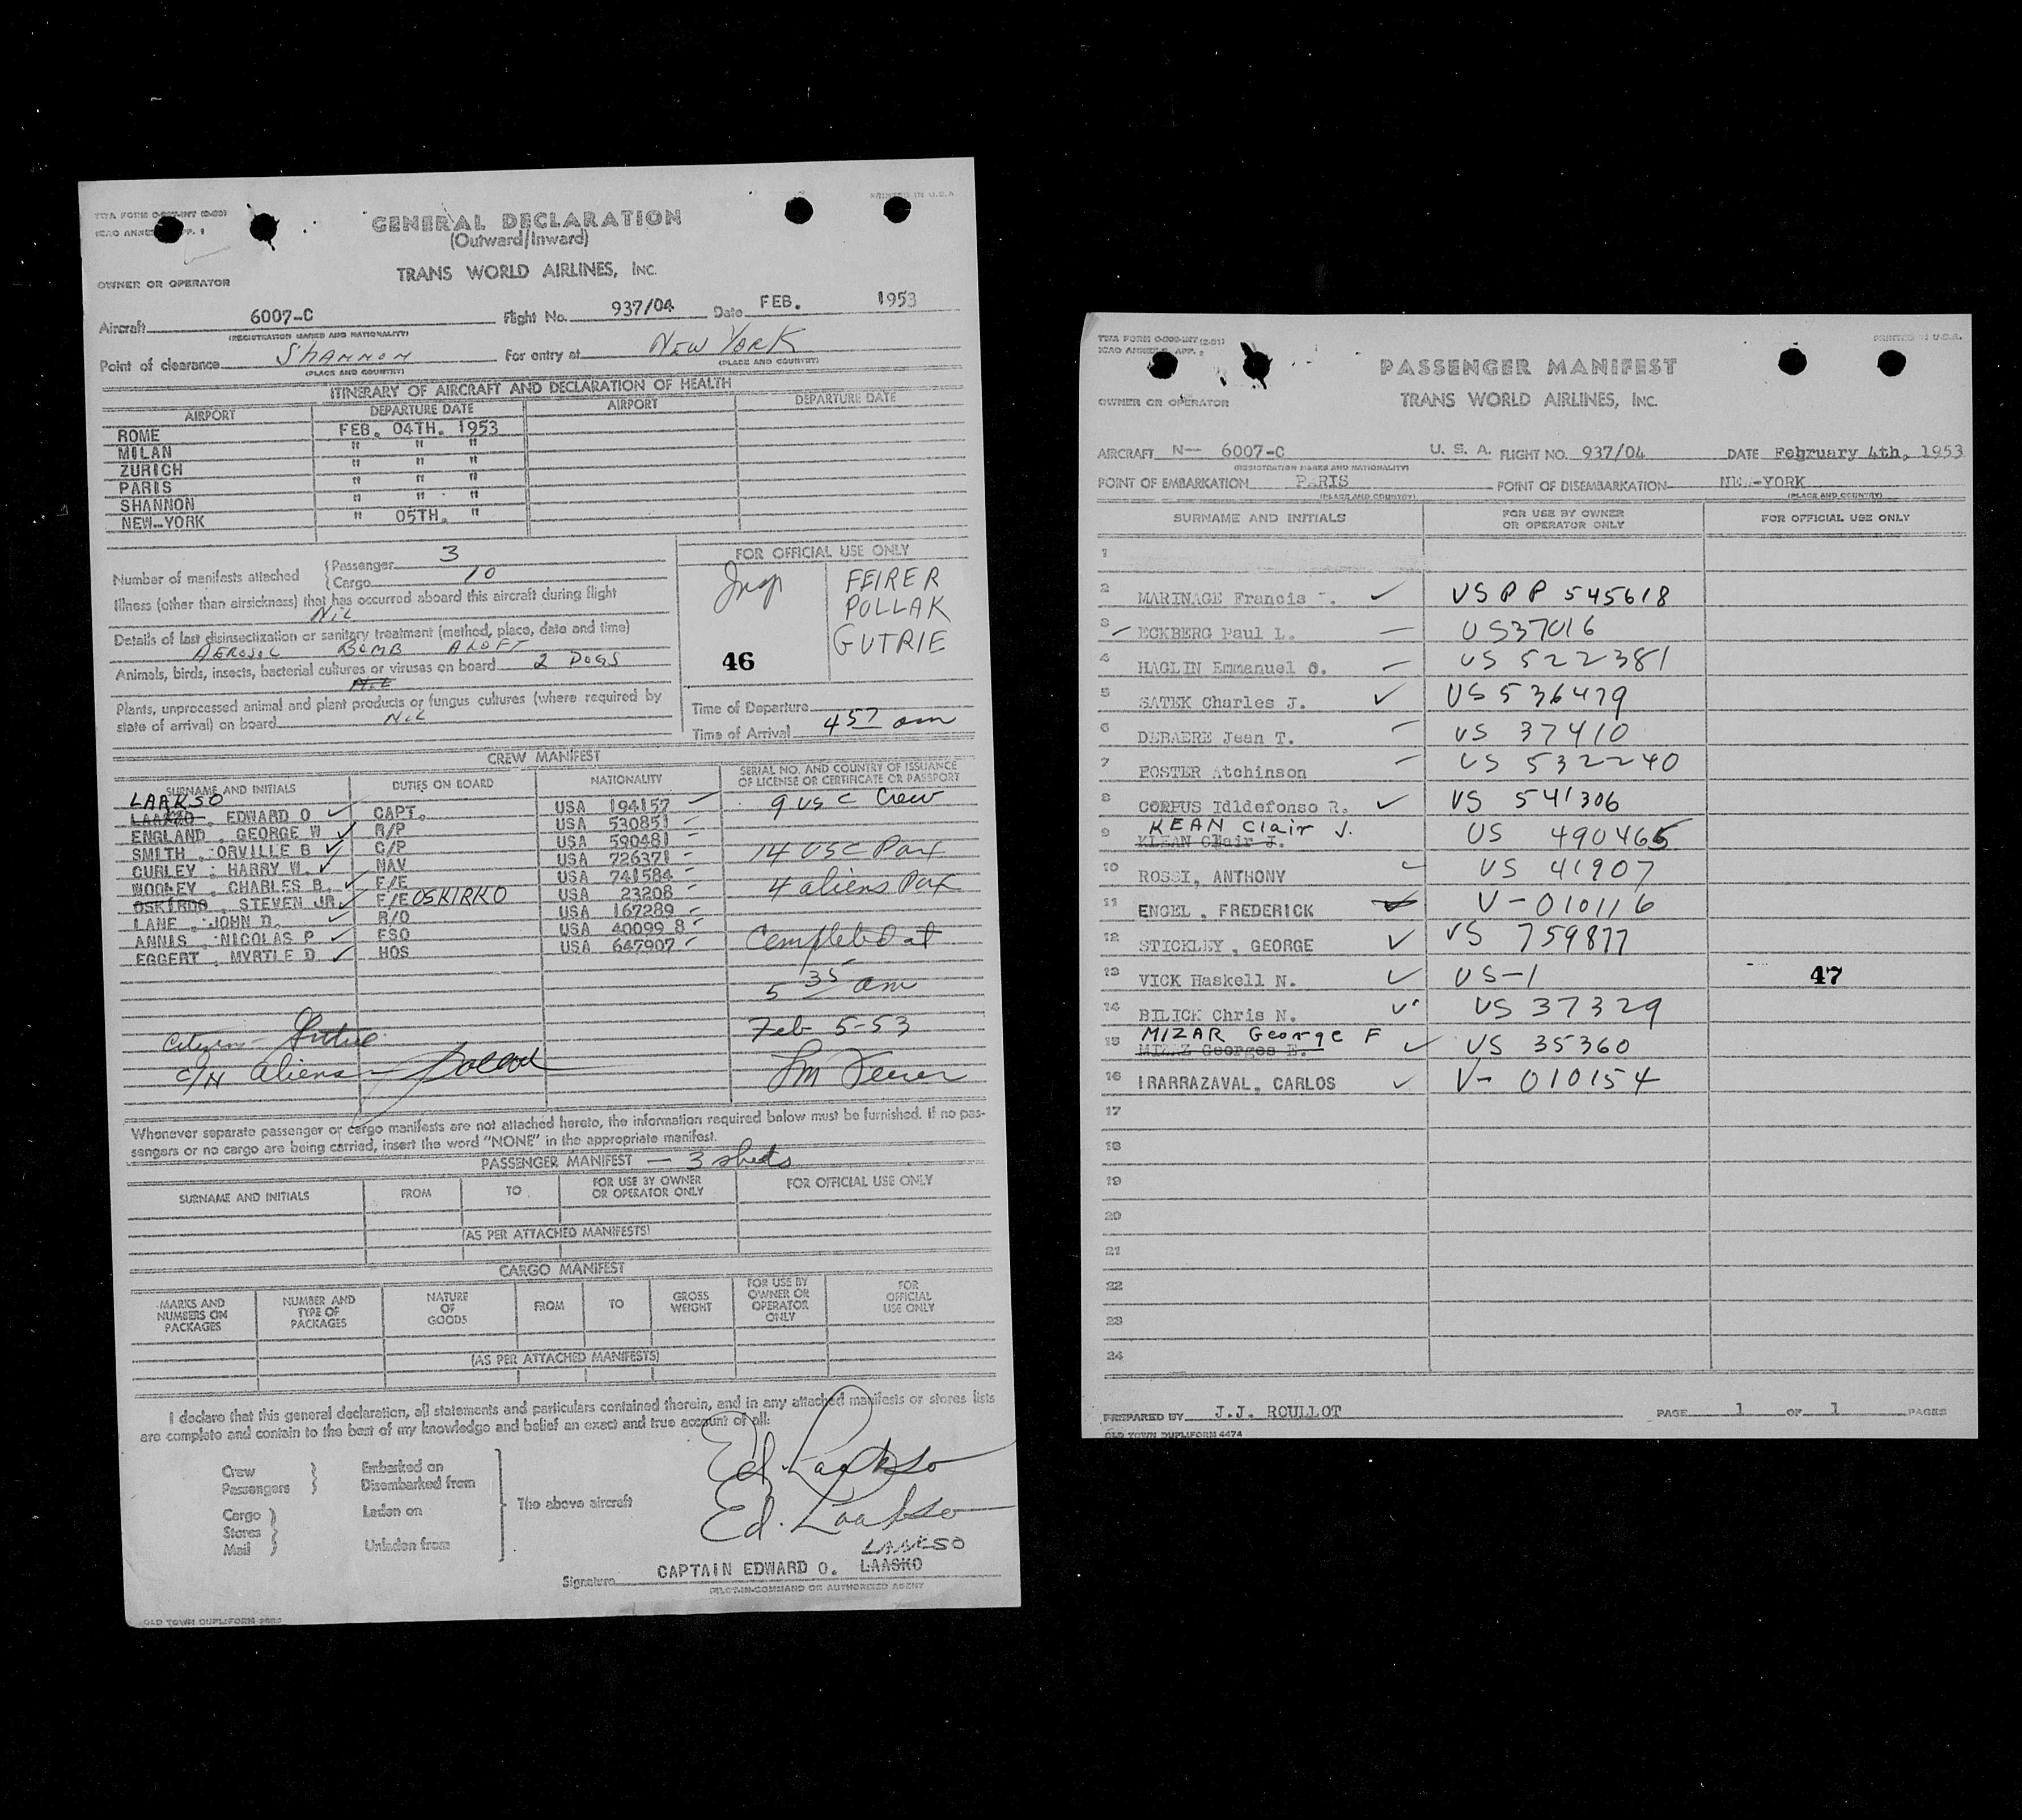 TWA FORM
ICAO ANNEX
PRINTED IN U.S.A.
GENERAL DECLARATION
(Outward/Inward)
TRANS WORLD AIRLINES, INC.
OWNER OR OPERATOR
Aircraft 6007-C Flight No. 937/04 Date FEB. 1953
(REGISTRATION MARKS AND NATIONALITY)
Point of clearance Shannon For entry at New York
(PLACE AND COUNTRY) (PLACE AND COUNTRY)
ITINERARY OF AIRCRAFT AND DECLARATION OF HEALTH
AIRPORT DEPARTURE DATE AIRPORT DEPARTURE DATE
ROME FEB. 04TH. 1953
MILAN " " "
ZURICH " " "
PARIS " " "
SHANNON " " "
NEW-YORK " 05TH. "
Number of manifests attached {Passenger 3
{Cargo 10
Illness (other than airsickness) that has occurred aboard this aircraft during flight
Nil
Details of last disinsectization or sanitary treatment (method, place, date and time)
AEROSOL BOMB ALOFT
Animals, birds, insects, bacterial cultures or viruses on board 2 DOGS
Nil
Plants, unprocessed animal and plant products or fungus cultures (where required by
state of arrival) on board Nil
FOR OFFICIAL USE ONLY
Insp FEIRER
POLLAK
GUTRIE
46
Time of Departure
Time of Arrival 4 57 am
CREW MANIFEST
SURNAME AND INITIALS DUTIES ON BOARD NATIONALITY SERIAL NO. AND COUNTRY OF ISSUANCE
OF LICENSE OR CERTIFICATE OR PASSPORT
LAAKSO
LAASKO, EDWARD O ✓ CAPT. USA 194157 9 USC Crew
ENGLAND, GEORGE W ✓ R/P USA 530851
SMITH, ORVILLE B ✓ C/P USA 590481 14 USC Pax
CURLEY, HARRY W. ✓ NAV USA 726371
WOOLEY, CHARLES B. ✓ F/E USA 741584 4 aliens Pax
OSKIRDO, STEVEN JR ✓ F/E OSKIRKO USA 23208
LANE, JOHN D. ✓ R/O USA 167289
ANNIS, NICOLAS P ✓ FSO USA 40099 8 Completed at
EGGERT, MYRTLE D ✓ HOS USA 647907
5 35 am
Feb 5-53
Citizens - Gutrie
C/N aliens -
Whenever separate passenger or cargo manifests are not attached hereto, the information required below must be furnished. If no pas-
sengers or no cargo are being carried, insert the word "NONE" in the appropriate manifest.
PASSENGER MANIFEST — 3 sheets
SURNAME AND INITIALS FROM TO FOR USE BY OWNER OR OPERATOR ONLY FOR OFFICIAL USE ONLY
(AS PER ATTACHED MANIFESTS)
CARGO MANIFEST
MARKS AND NUMBERS ON PACKAGES NUMBER AND TYPE OF PACKAGES NATURE OF GOODS FROM TO GROSS WEIGHT FOR USE BY OWNER OR OPERATOR ONLY FOR OFFICIAL USE ONLY
(AS PER ATTACHED MANIFESTS)
I declare that this general declaration, all statements and particulars contained therein, and in any attached manifests or stores lists
are complete and contain to the best of my knowledge and belief an exact and true account of all:
Crew } Embarked on
Passengers } Disembarked from
Cargo } Laden on
Stores }
Mail } Unladen from
The above aircraft
Ed. Laakso
Ed. Laakso
LAAKSO
Signature CAPTAIN EDWARD O. LAASKO
PILOT-IN-COMMAND OR AUTHORIZED AGENT
OLD TOWN DUPLIFORM
TWA FORM
ICAO ANNEX
PRINTED IN U.S.A.
PASSENGER MANIFEST
OWNER OR OPERATOR TRANS WORLD AIRLINES, INC.
AIRCRAFT N-- 6007-C U. S. A. FLIGHT NO. 937/04 DATE February 4th, 1953
(REGISTRATION MARKS AND NATIONALITY)
POINT OF EMBARKATION PARIS POINT OF DISEMBARKATION NEW-YORK
(PLACE AND COUNTRY) (PLACE AND COUNTRY)
SURNAME AND INITIALS FOR USE BY OWNER OR OPERATOR ONLY FOR OFFICIAL USE ONLY
1
2 MARINAGE Francis ✓ USPP 545618
3 ECKBERG Paul L. — US37016
4 HAGLIN Emmanuel O. — US 522381
5 SATEK Charles J. ✓ US 536479
6 DEBAERE Jean T. — US 37410
7 FOSTER Atchinson — US 532240
8 CORPUS Idldefonso R. ✓ US 541306
KEAN Clair J.
9 KLEAN Clair J. US 490465
10 ROSSI, ANTHONY ✓ US 41907
11 ENGEL, FREDERICK V-010116
12 STICKLEY, GEORGE ✓ US 759877
13 VICK Haskell N. ✓ US-1 47
14 BILICK Chris N. ✓ US 37329
MIZAR George F
15 ✓ US 35360
16 IRARRAZAVAL, CARLOS ✓ V- 010154
17
18
19
20
21
22
23
24
PREPARED BY J.J. ROULLOT PAGE 1 OF 1 PAGES
OLD TOWN DUPLIFORM 4474